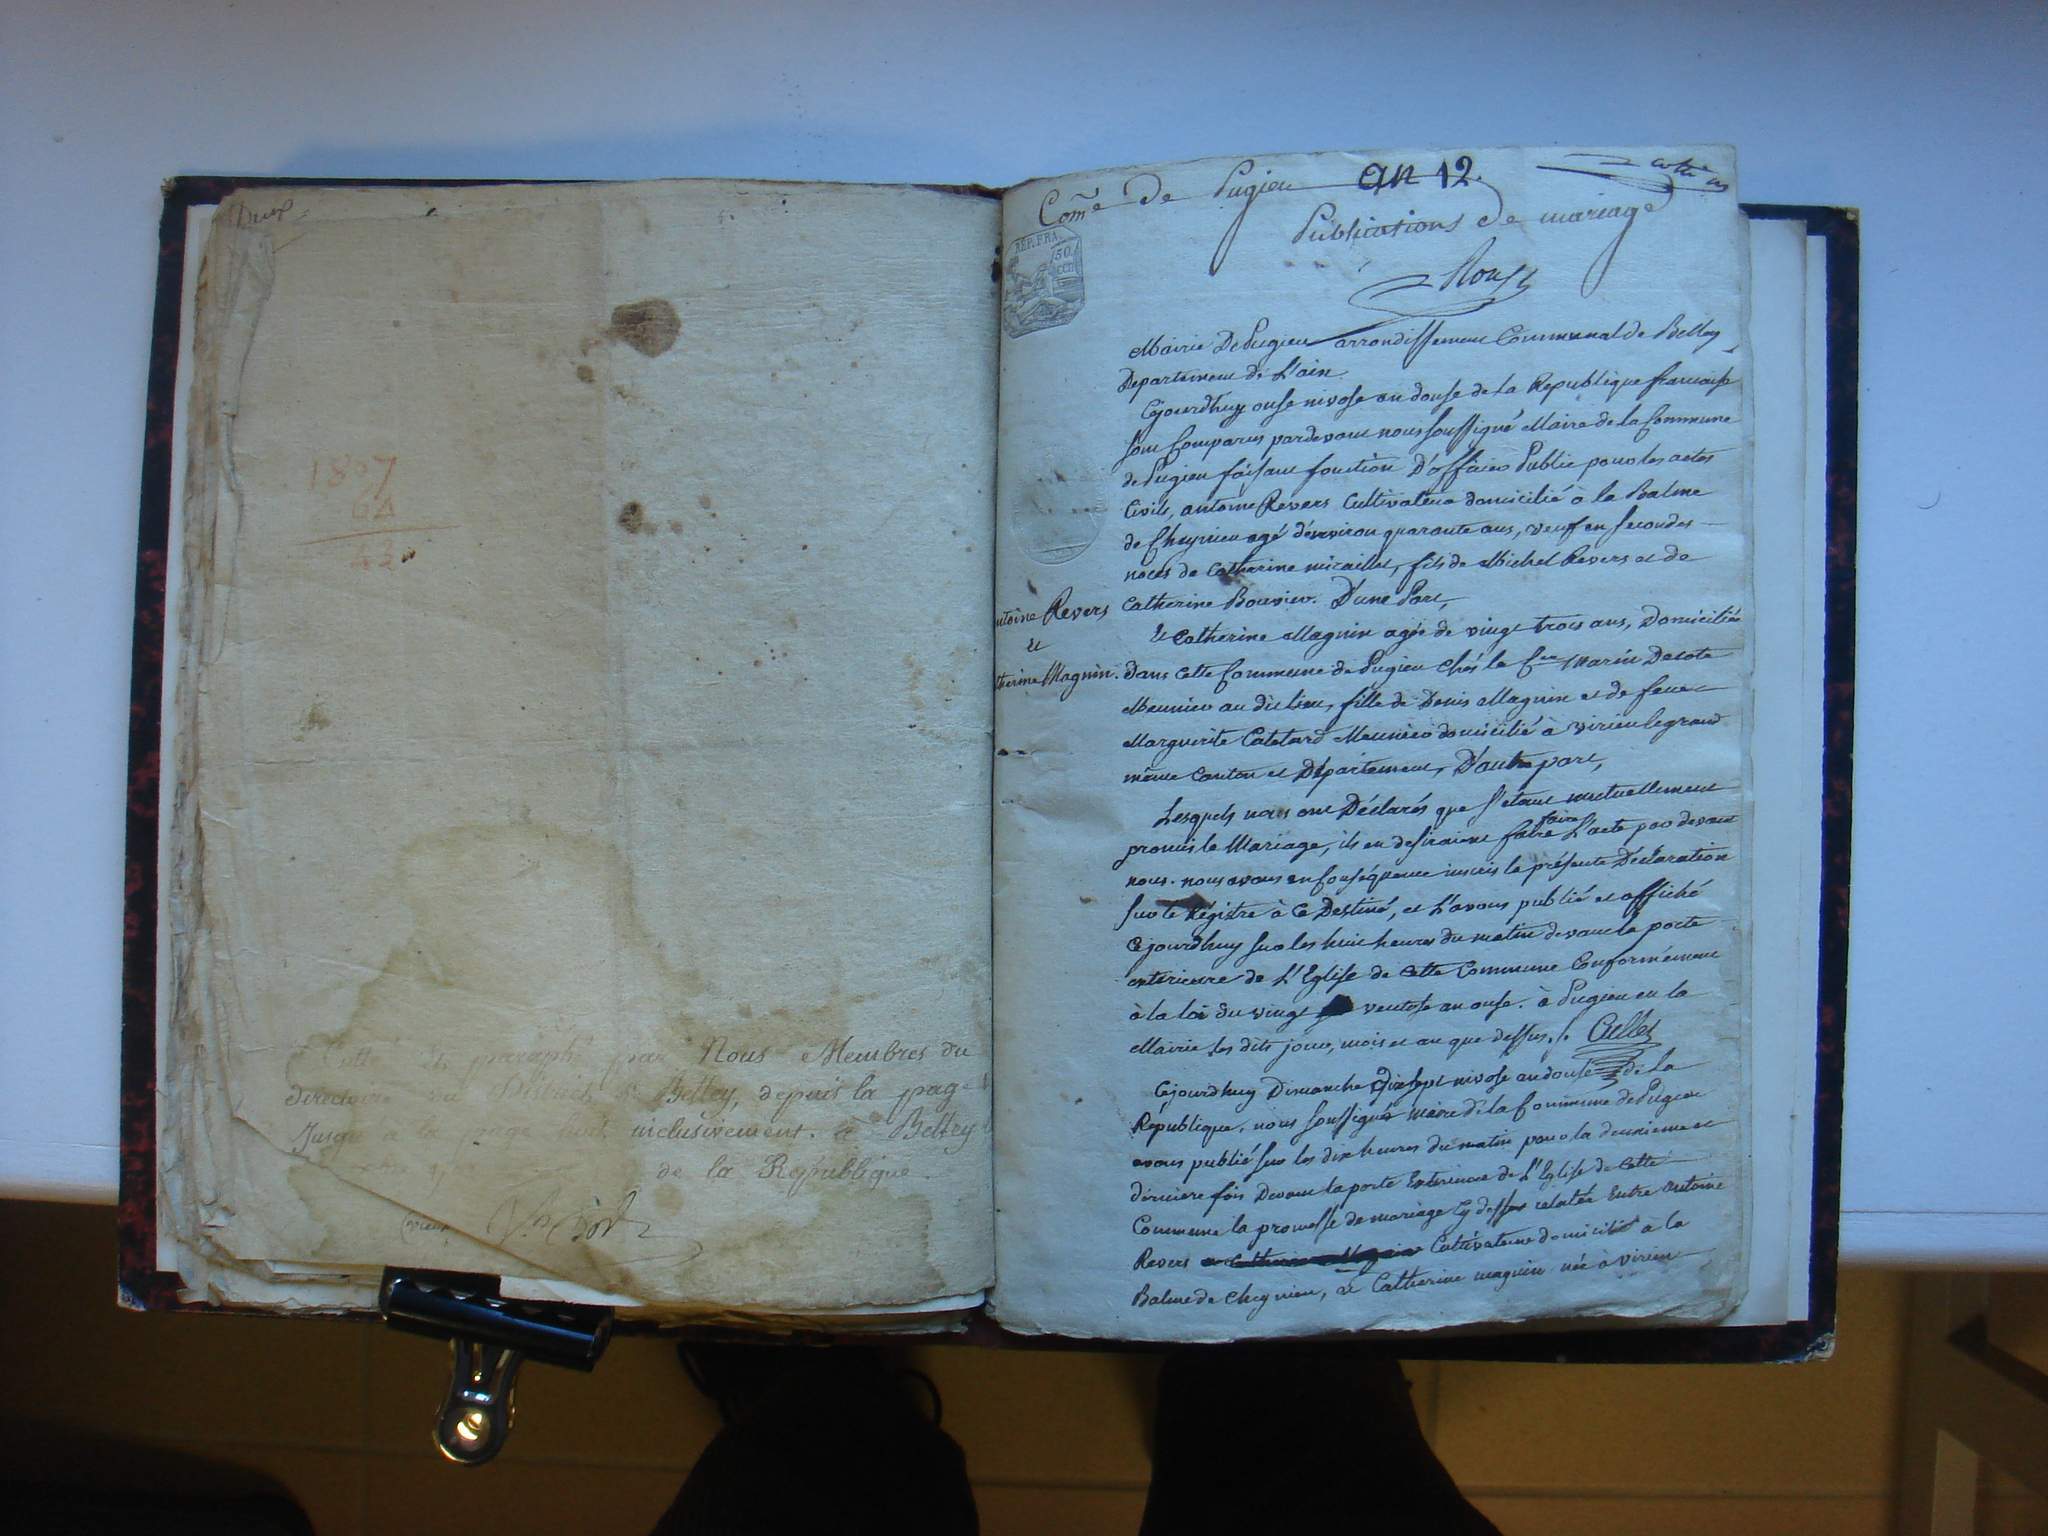 Deux
1807
64
43
Cotté et paraphé par Nous Membres du
directoire du District de Belley, depuis la page
Jusqu'à la page huit inclusivement. à Belley
de la République
Com.e de Pugieu an 12.
Publications de mariage
REP. FRA.
50
Mairie De Pugieu arrondissement Communal de Belley
Departement de L'ain
Cejourdhuy onse nivose an douse de la Republique francaise
sont Comparus pardevant nous soussigné Maire de la Commune
de Pugieu faisant fonction D'officier Public pour les actes
Civils, antoine Revers Cultivateur domicilié à la Balme
de Cheynieu agé d'environ quarante ans, veuf en secondes
noces de Catherine miraillet, fils de Michel Revers et de
Catherine Bouvier. D'une Part,
antoine Revers
et
Catherine Magnin.
et Catherine Magnin agée de vingt trois ans, Domiciliée
Dans cette Commune de Pugieu Chés le Marin Decote
Meunier au dit lieu, fille de Denis Magnin et de feue
Marguerite Catetard Meunier domicilié à virieu le grand
même Canton et Département, D'autre part,
Lesquels nous ont Déclarés que s'étant mutuellement
promis le Mariage, ils en desiraient faire L'acte par devant
nous. nous avons en Conséquence inscris la présente Déclaration
sur le Régistre à ce Destiné, et L'avons publié et affiché
Cejourdhuy sur les huit heures du matin devant la porte
exterieure de L'Eglise de cette Commune Conformément
à la loi du vingt ventose an onse. à Pugieu en la
Mairie les dits jour, mois et an que dessus./.
Cejourdhuy Dimanche Dixsept nivose an douse de la
République, nous soussigné Maire de la Commune de Pugieu
avons publié sur les dix heures du matin pour la deuxieme et
derniere fois Devant la porte Exterieure de L'Eglise de cette
Commune la promesse de mariage Cy dessus relatée Entre Antoine
Revers et Catherine Magnin Cultivateur domicilié à la
Balme de Cheynieu, et Catherine magnin née à virieu